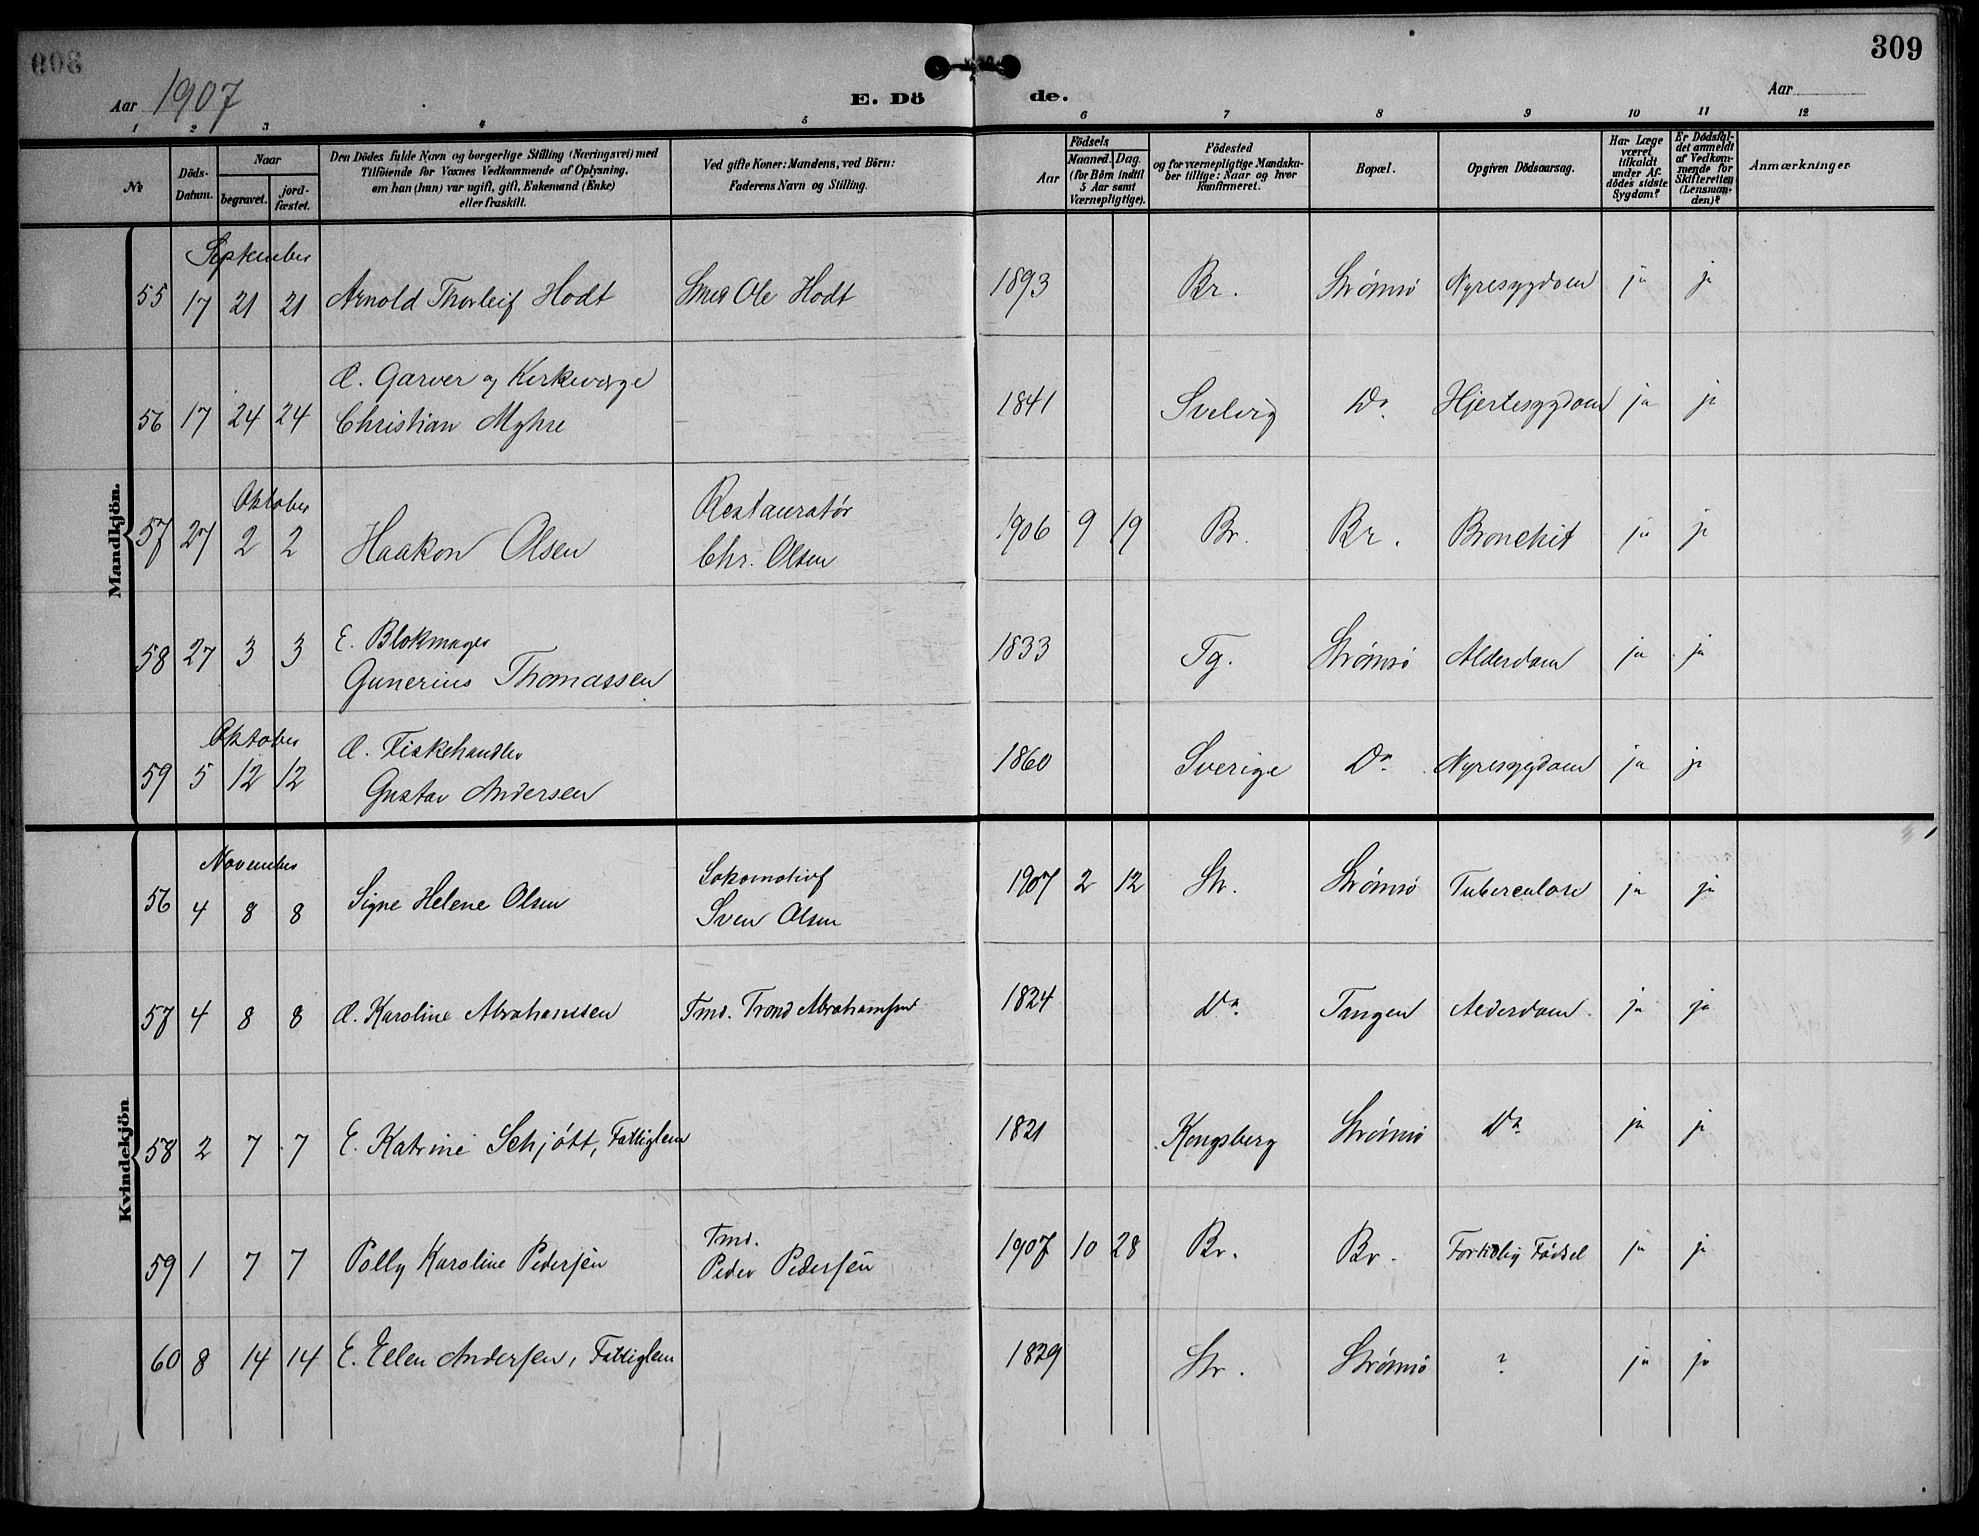 309
Aar 1907
E. Dö de.
Aar
1 2 3 4 5 6 7 8 9 10 11 12
№
Döds-Datum.
Naar
begravet.
jord-fæstet.
Den Dödes fulde Navn og borgerlige Stilling (Næringsvei) med
Tilföiende for Voxnes Vedkommende af Oplysning,
om han (hun) var ugift, gift, Enkemand (Enke)
eller fraskilt.
Ved gifte Koner: Mandens, ved Börn:
Faderens Navn og Stilling.
Födsels
Aar
Maaned. Dag.
(for Börn indtil
5 Aar samt
Værnepligtige).
Födested
og for værnepligtige Mandska-
ber tillige: Naar og hvor
konfirmeret.
Bopæl.
Opgiven Dödsaarsag.
Har Læge
været
tilkaldt
under Af-
dödes sidste
Sygdom?
Er Dödsfal-
det anmeldt
af Vedkom-
mende for
Skifteretten
(Lensman-
den)?
Anmærkninger
Mandkjön.
September
55 17 21 21 Arnold Thorleif Hodt Smed Ole Hodt 1893 Br. Strømsø Nyresygdom ja ja
G. Garver og Kirkeværge
56 17 24 24 Christian Myhre 1841 Svelvig Do Hjertesygdom ja ja
Oktober Restauratør
57 27 2 2 Haakon Olsen Chr. Olsen 1906 9 19 Br. Br. Bronchit ja ja
E. Blokmager
58 27 3 3 Gunerius Thomassen 1833 Tg. Strømsø Alderdom ja ja
Oktober G. Fiskehandler
59 5 12 12 Gustav Andersen 1860 Sverige Do Nyresygdom ja ja
Kvindekjön
November Lokomotivf
56 4 8 8 Signe Helene Olsen Sven Olsen 1907 2 12 Str. Strømsø Tuberculose ja ja
57 4 8 8 G. Karoline Abrahamsen Tmd. Trond Abrahamsen 1824 Do Tangen Alderdom ja ja
58 2 7 7 E. Katrine Schjøtt, Fattiglem 1821 Kongsberg Strømsø Do ja ja
Tmd.
59 1 7 7 Polly Karoline Pedersen Peder Pedersen 1907 10 28 Br. Br. Fortidlig Fødsel ja ja
60 8 14 14 E. Ellen Andersen, Fattiglem 1829 Str. Strømsø ? ja ja